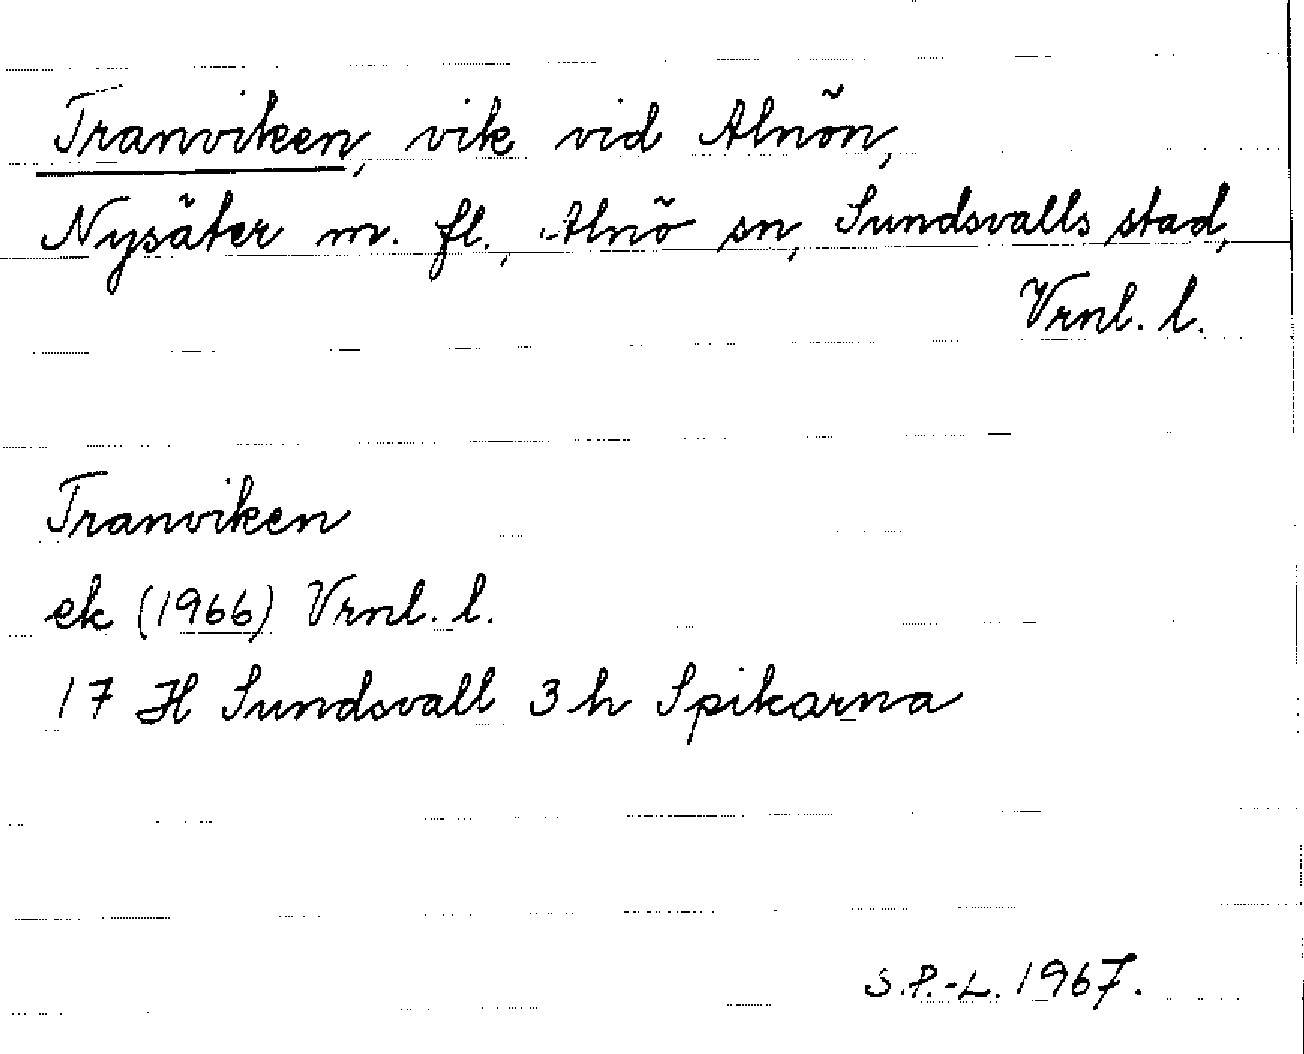 Tranviken, vik vid Alnön,
Nysäter m. fl., Alnö sn, Sundsvalls stad,
Vrnl. l.
Tranviken
ek (1966) Vrnl. l.
17 H Sundsvall 3 h Spikarna
S.P.-L. 1967.